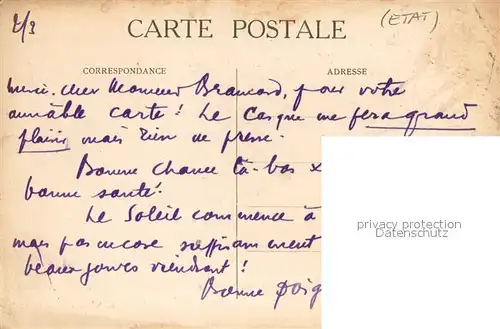 2/3
(ETAT)
CARTE POSTALE
CORRESPONDANCE
ADRESSE
Merci, cher Monsieur Brancard, pour votre
aimable carte! Le Casque me fera grand
plaisir, mais rien ne presse.
Bonne chance là-bas x
bonne santé!
Le Soleil commence à
mais pas encore suffisamment
beaux jours viendront!
Bonne
privacy protection
Datenschutz